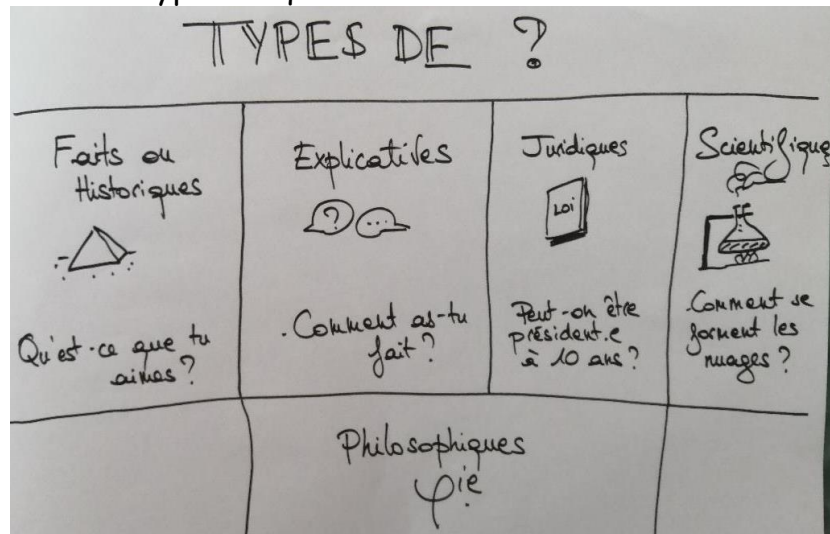 TYPES DE ?
Faits ou
Historiques
Qu'est-ce que tu
aimes ?
Explicatives
?
...
.Comment as-tu
fait ?
Juridiques
LOI
Peut-on être
président.e
à 10 ans ?
Scientifiques
.Comment se
forment les
nuages ?
Philosophiques
φie